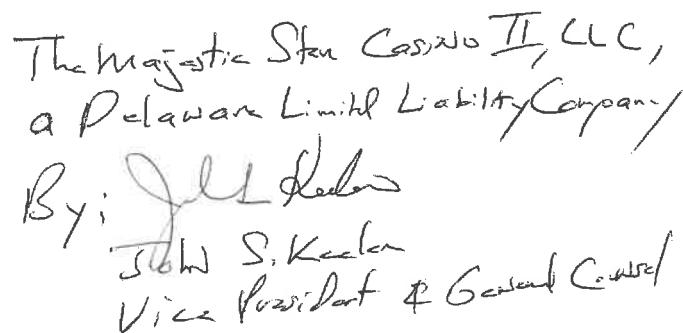 The Majestic Star Casino II, LLC,
a Delaware Limited Liability Company
By:
John S. Keeler
Vice President & General Counsel